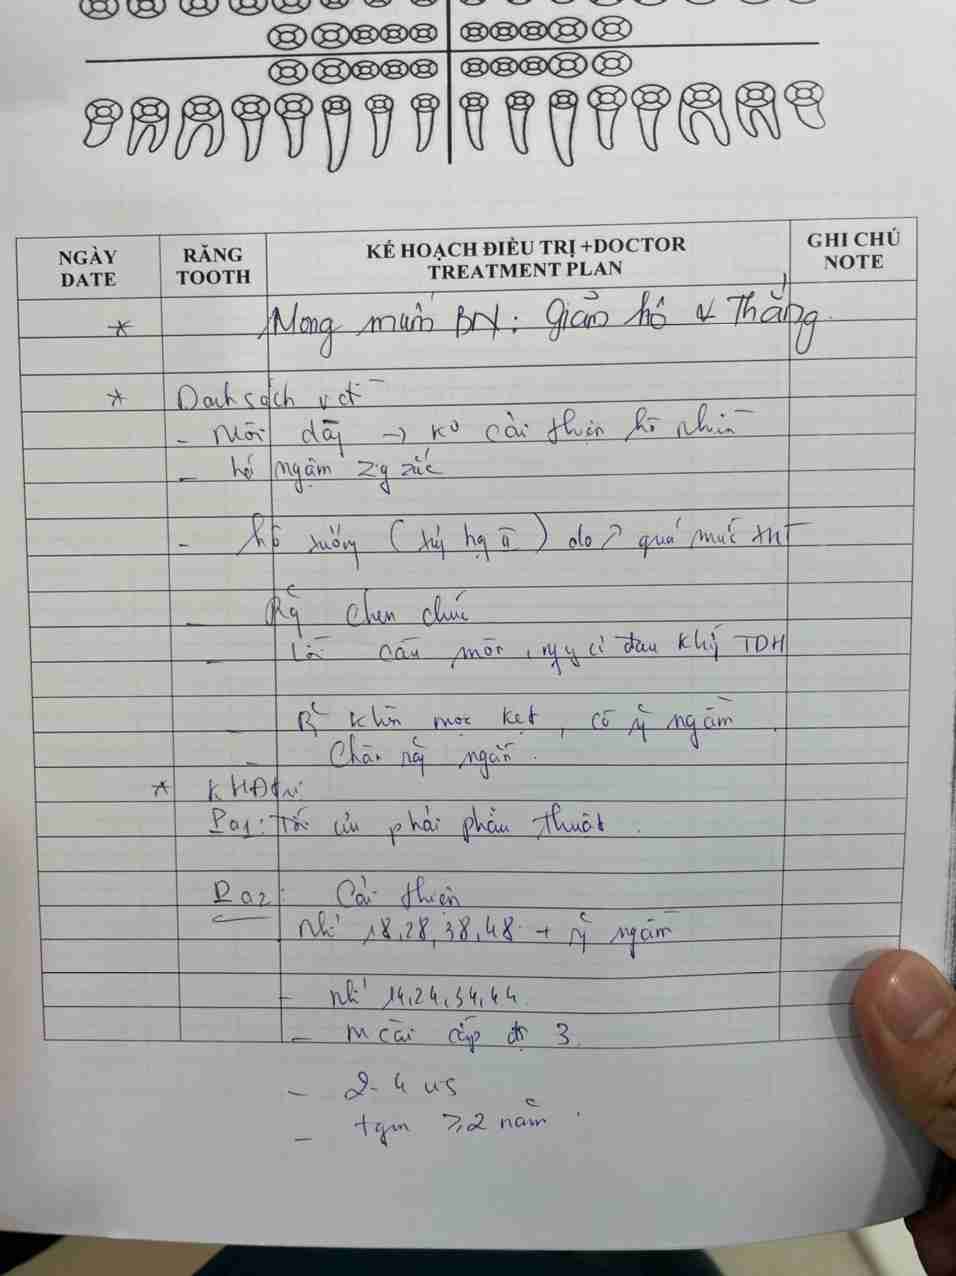 NGÀY
DATE
RĂNG
TOOTH
KẾ HOẠCH ĐIỀU TRỊ +DOCTOR
TREATMENT PLAN
GHI CHÚ
NOTE
* Mong muốn BN: Giảm hô & Thẳng.
* Danh sách vđ
- Môi dày → ko cải thiện hô nhiều
- hô ngậm
- hô xương ( ) do ↗ quá mức XHT
- Rg chen chúc
- cắn môi, nguy cơ đau khớp TDH
- R khôn mọc kẹt, có R ngầm
- Chân răng ngắn.
* KHĐtrị
Pa1: Tối ưu phải phẫu thuật.
Pa2: Cải thiện
Nhổ 18,28,38,48 + R ngầm
- nhổ 14,24,34,44.
- m cài cấp độ 3
- 2-4 vis
- tgian ≥2 năm.